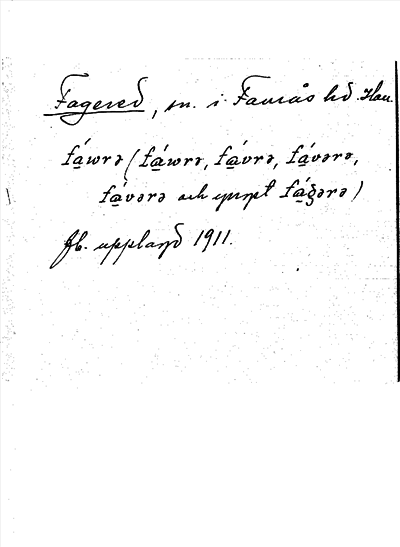 Fagered, sn. i Faurås hd. Hall.
fá̱wrə (fá̱wrə, fá̱vrə, fá̱vərə,
fá̱vərə och yngst fá̱gərə)
fb. uppland 1911.